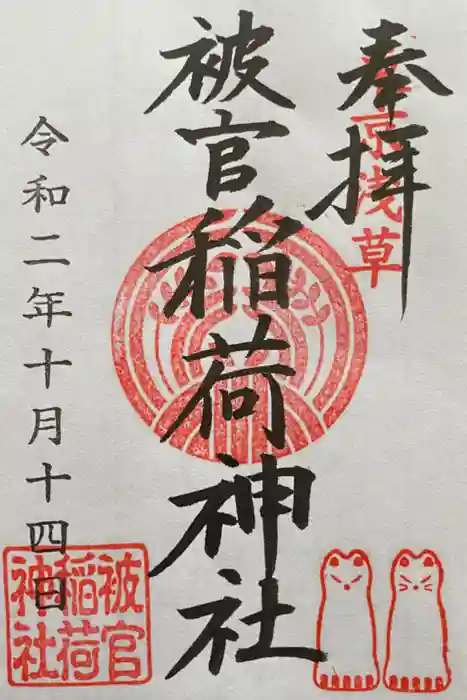 奉拝
東京浅草
被官稲荷神社
令和二年十月十四日
被官
稲荷
神社